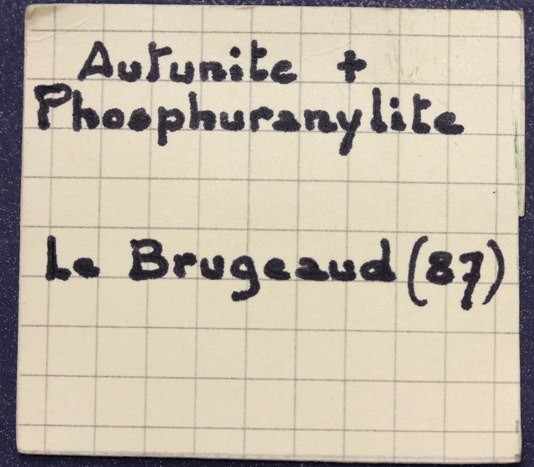 Autunite +
Phosphuranylite
Le Brugeaud (87)